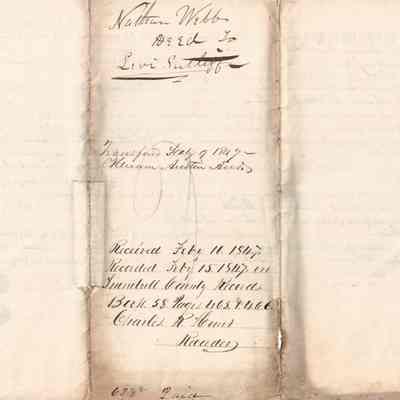 Nathan Webb
Deed To
Levi Sutliff
Transferd Feby 9 1847
Hiram Austin Aud.
Received Feby 10 1847
Recorded Feby 15 1847 in
Trumbull County Records
Book 58 Pages 465 & 466
Charles R Hunt
Recorder
Paid